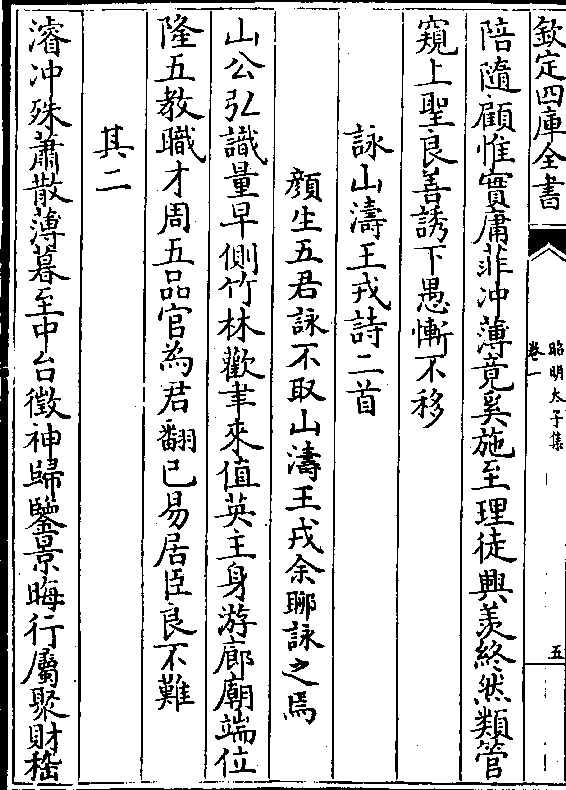 欽定四庫全書
昭明太子集
卷一
五
陪隨顧惟實庸菲冲薄竟奚施至理徒興羡終然類管
窺上聖良善誘下愚慚不移
詠山濤王戎詩二首
顔生五君詠不取山濤王戎余聊詠之焉
山公弘識量早側竹林歡聿來值英主身游廊廟端位
隆五教職才周五品官為君翻已易居臣良不難
其二
濬冲殊蕭散薄暮至中台徵神歸鑒景晦行屬聚財嵇